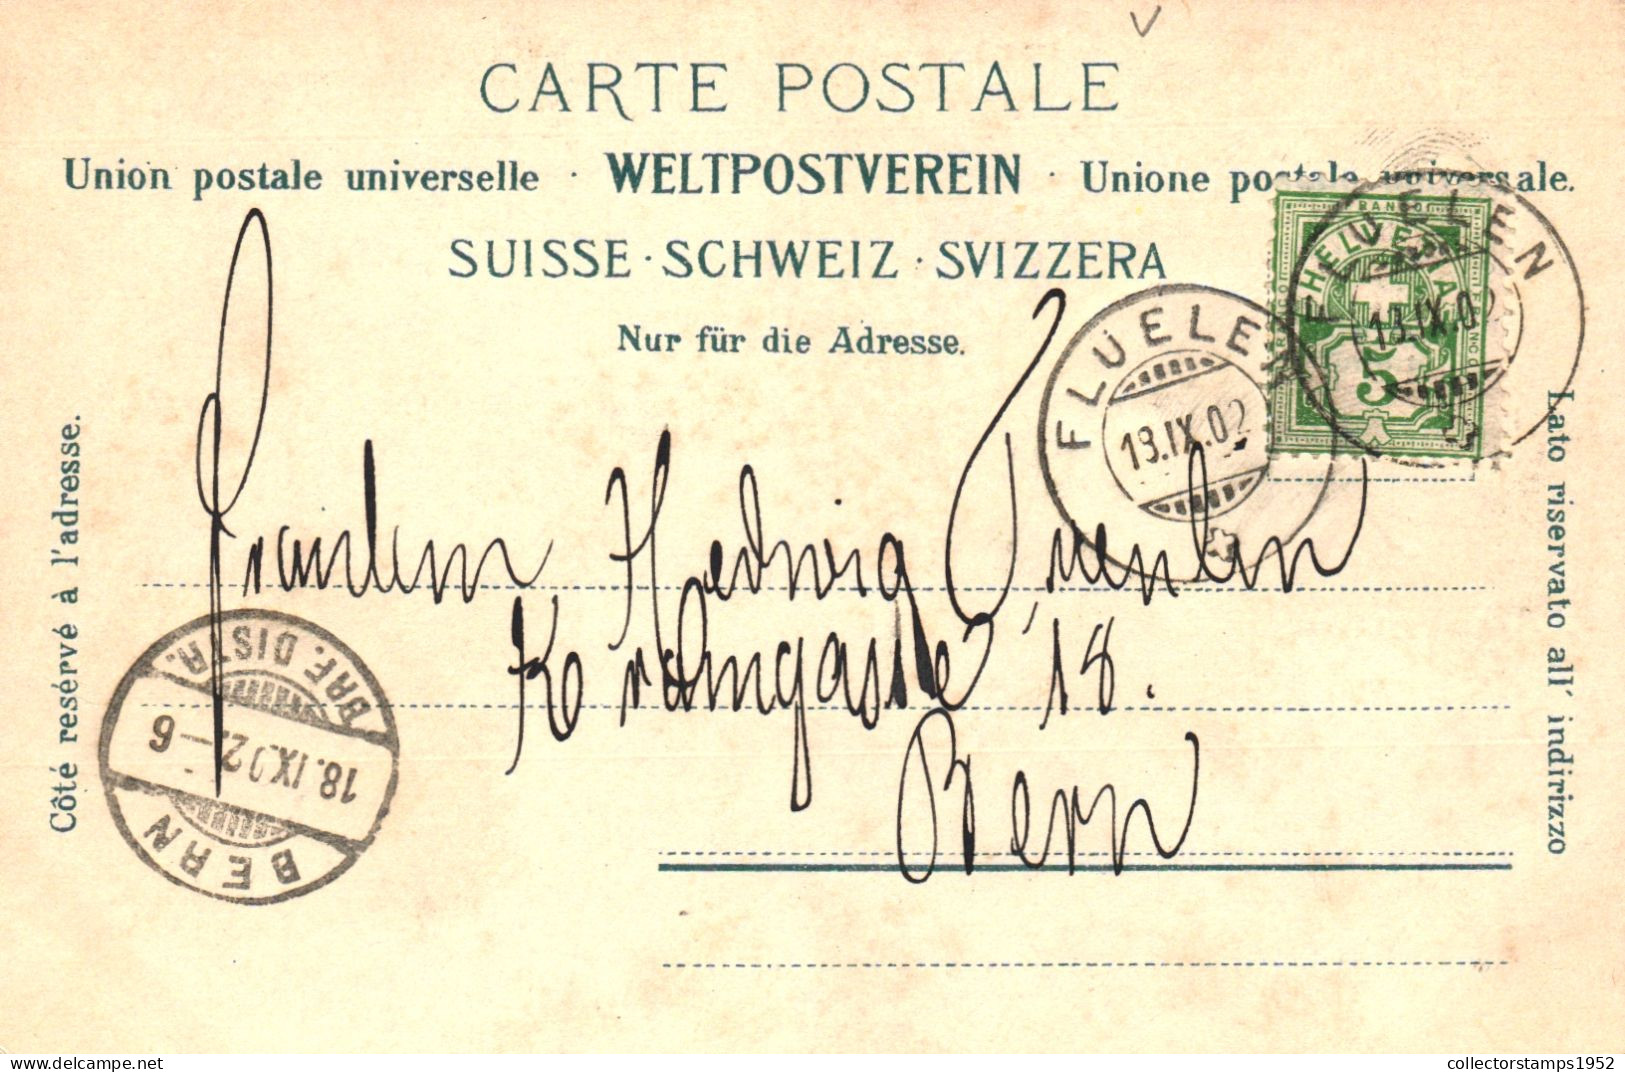 CARTE POSTALE
Union postale universelle · WELTPOSTVEREIN · Unione postale universale.
SUISSE · SCHWEIZ · SVIZZERA
Nur für die Adresse.
Côté reservé à l'adresse.
Lato riservato all' indirizzo
FRANCO
HELVETIA
5
FLUELEN
FLUELEN
13.IX.02
Fräulein Hedwig
Kramgasse 18.
Bern
BRF. DISTR.
18.IX.02.–6
BERN
collectorstamps1952